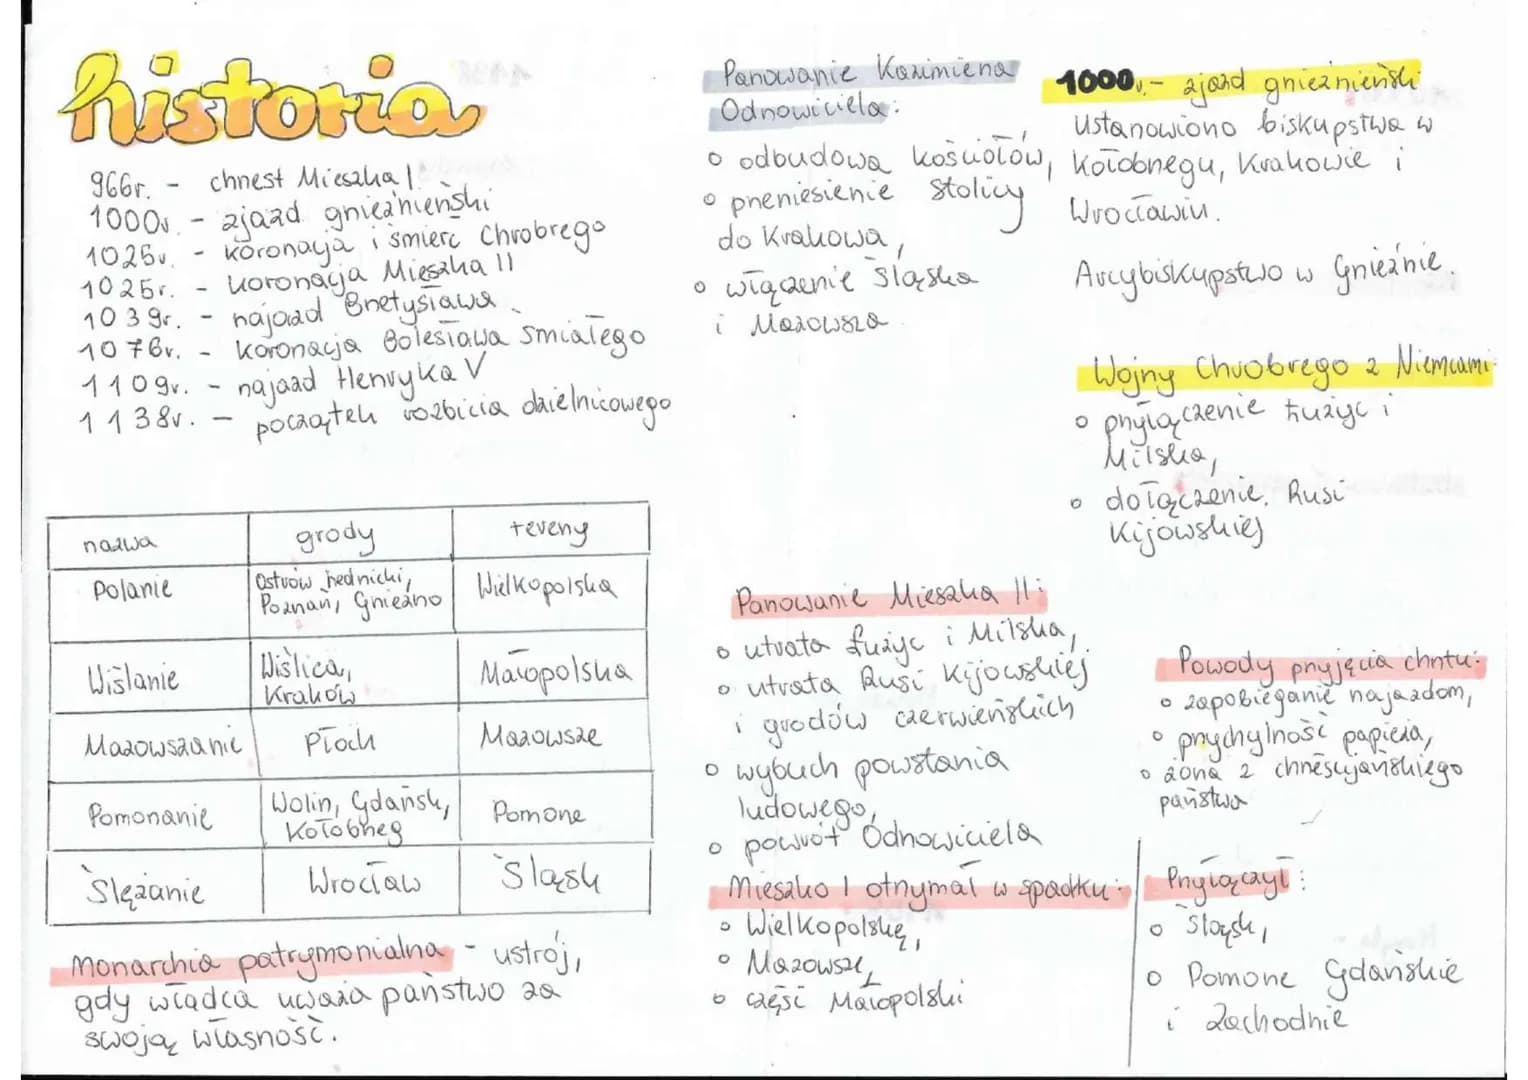 historia
966r. - chrzest Mieszka I
1000r. - zjazd gnieźnieński
1025r. - koronacja i śmierć Chrobrego
1025r. - koronacja Mieszka II
1039r. - najazd Brzetysława
1076r. - koronacja Bolesława Śmiałego
1109r. - najazd Henryka V
1138r. - początek rozbicia dzielnicowego
nazwa grody tereny
Polanie Ostrów Lednicki, Poznań, Gniezno Wielkopolska
Wiślanie Wiślica, Kraków Małopolska
Mazowszanie Płock Mazowsze
Pomorzanie Wolin, Gdańsk, Kołobrzeg Pomorze
Ślężanie Wrocław Śląsk
Monarchia patrymonialna - ustrój,
gdy władca uważa państwo za
swoją własność.
Panowanie Kazimierza
Odnowiciela:
o odbudowa kościołów,
o przeniesienie stolicy
do Krakowa,
o włączenie Śląska
i Mazowsza
Panowanie Mieszka II:
o utrata Łużyc i Milska,
o utrata Rusi Kijowskiej
i grodów czerwieńskich
o wybuch powstania
ludowego,
o powrót Odnowiciela
Mieszko I otrzymał w spadku:
o Wielkopolskę,
o Mazowsze,
o część Małopolski
1000r. - zjazd gnieźnieński
Ustanowiono biskupstwa w
Kołobrzegu, Krakowie i
Wrocławiu.
Arcybiskupstwo w Gnieźnie.
Wojny Chrobrego z Niemcami:
o przyłączenie Łużyc i
Milska,
o dołączenie Rusi
Kijowskiej
Powody przyjęcia chrztu:
o zapobieganie najazdom,
o przychylność papieża,
o żona z chrześcijańskiego
państwa
Przyłączył:
o Śląsk,
o Pomorze Gdańskie
i Zachodnie